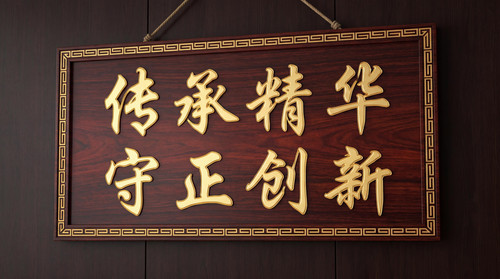 传承精华
守正创新